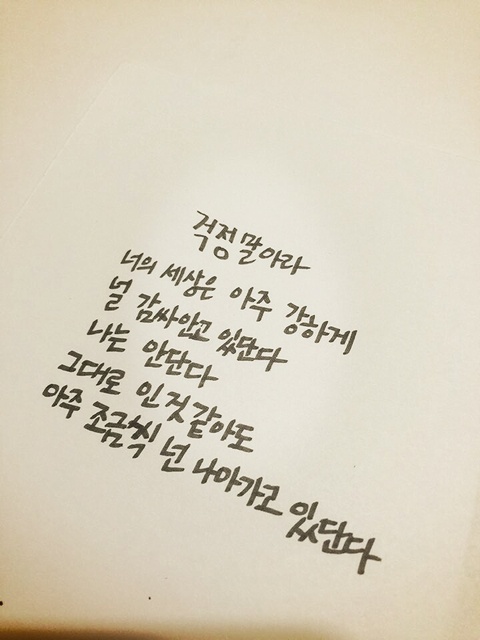 걱정말아라
너의 세상은 아주 강하게
널 감싸안고 있단다
나는 안단다
그대로 인것같아도
아주 조금씩 넌 나아가고 있단다